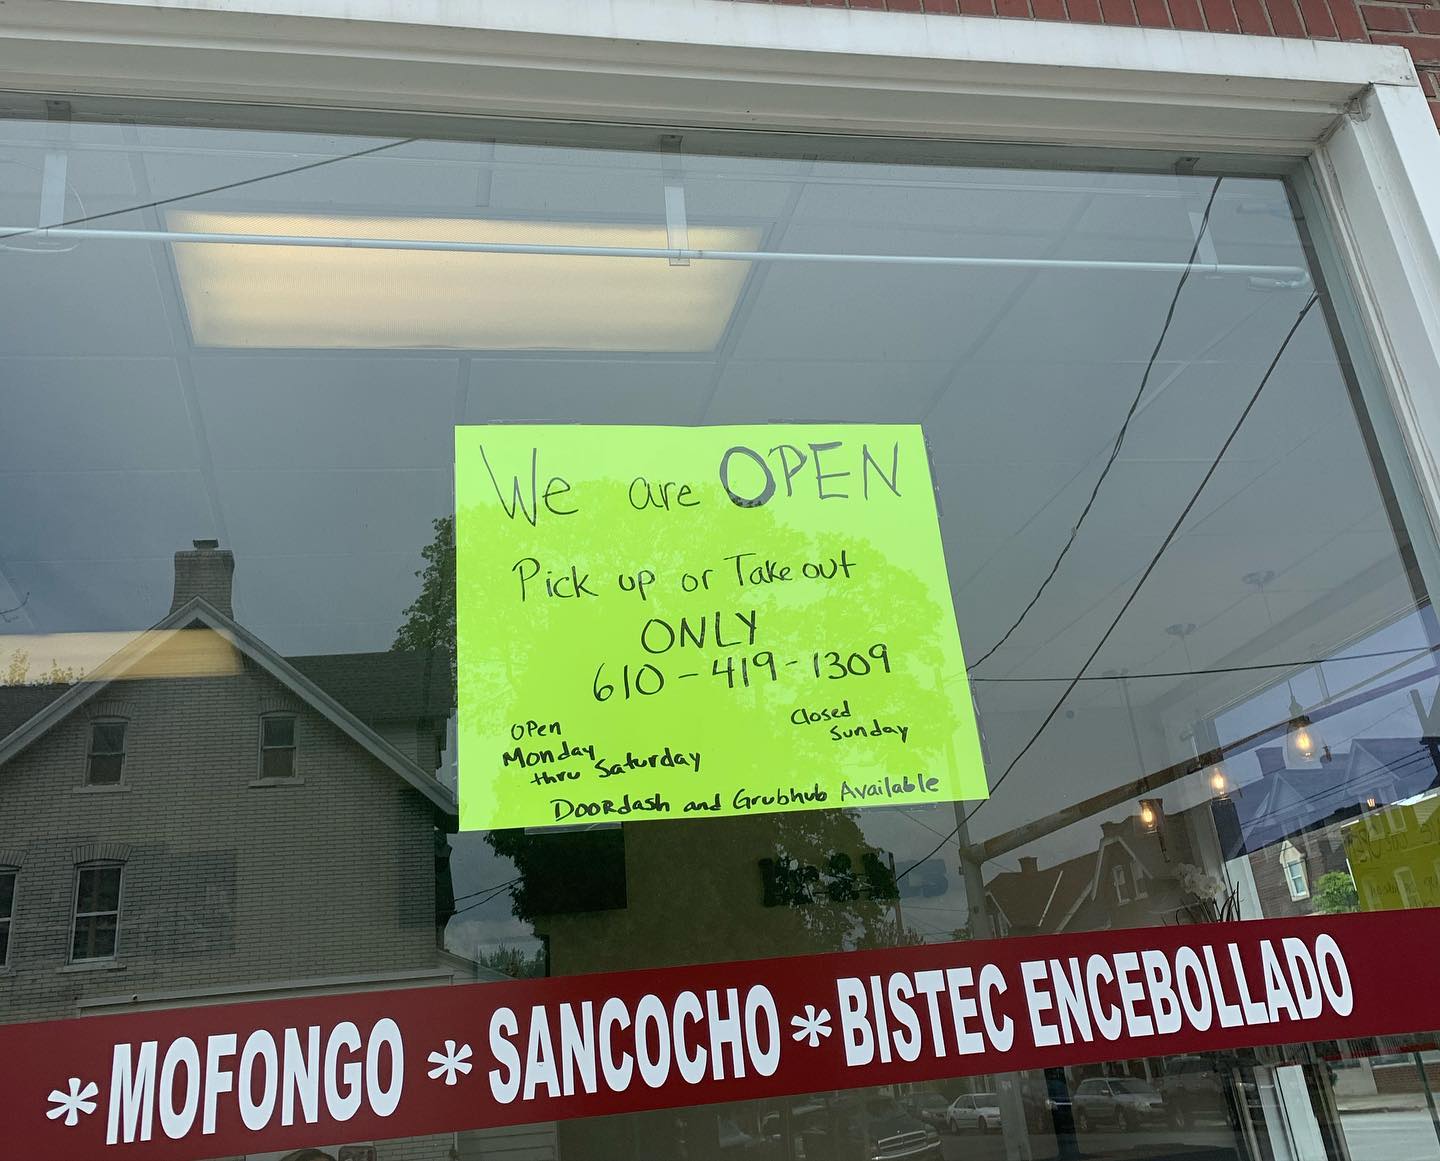 We are OPEN
Pick up or Take out
ONLY
610-419-1309
Open
Monday
thru Saturday
Closed
Sunday
Doordash and Grubhub Available
* MOFONGO * SANCOCHO * BISTEC ENCEBOLLADO